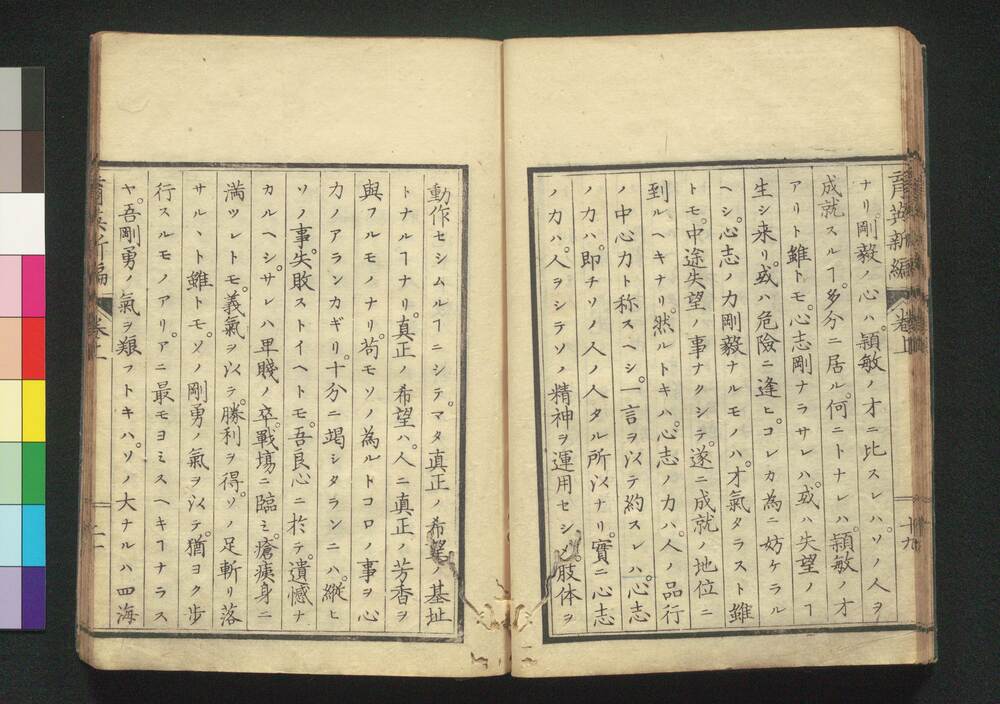 育英新編 卷上 十九
ナリ剛毅ノ心ハ。穎敏ノ才ニ比スレハ。ソノ人ヲ
成就スルヿ。多分ニ居ル。何ニトナレハ。穎敏ノオ
アリト雖トモ。心志剛ナラサレハ。或ハ失望ノヿ
生シ来リ。或ハ危險ニ逢ヒ。コレカ為ニ妨ケラル
ヘシ。心志ノ力剛毅ナルモノハ。才氣タラスト雖
トモ。中途失望ノ事ナクシテ。遂ニ成就ノ地位ニ
到ルヘキナリ。然ルトキハ。心志ノ力ハ。人ノ品行
ノ中心力ト称スヘシ。一言ヲ以テ約スレハ。心志
ノ力ハ。即チソノ人ノ人タル所以ナリ。實ニ心志
ノ力ハ。人ヲシテソノ精神ヲ運用セシメ。肢体ヲ
動作セシムルヿニシテ。マタ真正ノ希望ノ基址
トナルヿナリ。真正ノ希望ハ。人ニ真正ノ芳香ヲ
與フルモノナリ。苟モソノ為ルトコロノ事ヲ心
力ノアランカギリ。十分ニ竭シタランニハ。縱ヒ
ソノ事。失敗ストイヘトモ。吾良心ニ於テ。遺憾ナ
カルヘシ。サレハ卑賤ノ卒。戰塲ニ臨ミ。瘡痍身ニ
満ツレトモ。義氣ヲ以テ。勝利ヲ得。ソノ足斬リ落
サル丶ト雖トモ。ソノ剛勇ノ氣ヲ以テ。猶ヨク歩
行スルモノアリ。アニ最モヨミスヘキヿナラス
ヤ。吾剛勇ノ氣ヲ類フトキハ。ソノ大ナルハ四海